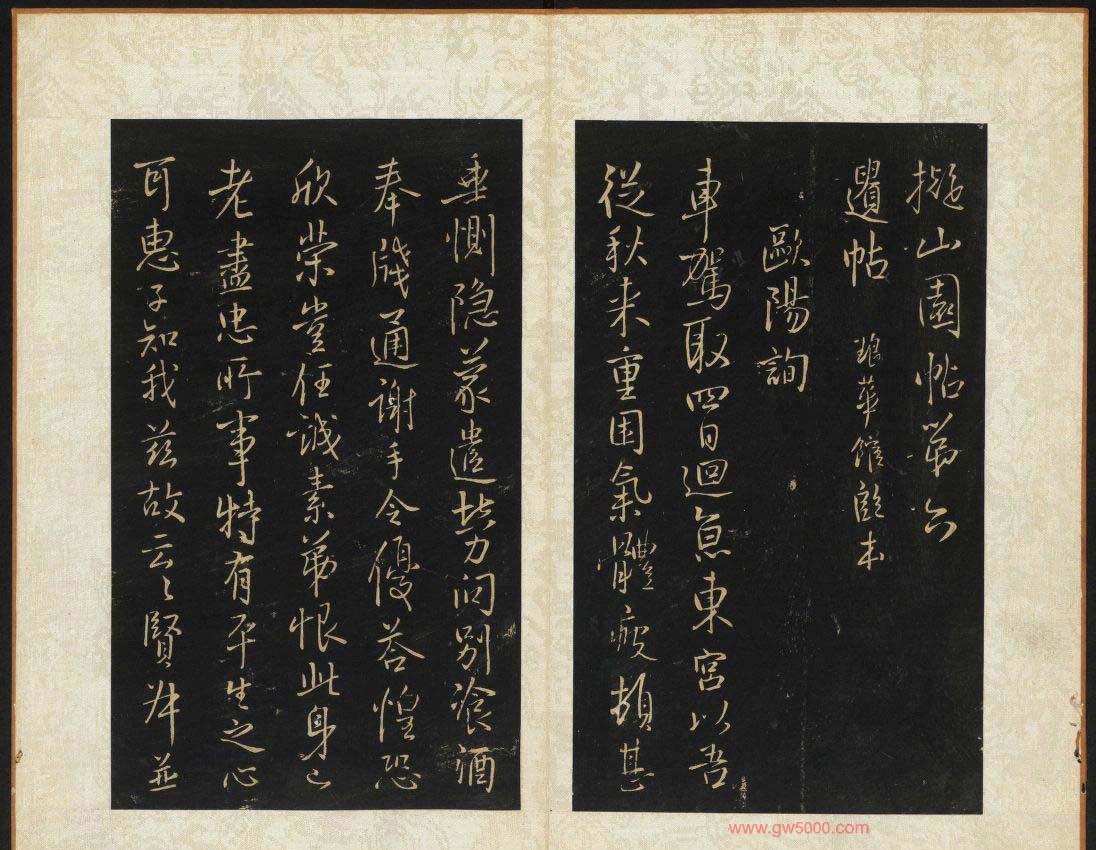 擬山園帖第六
遺帖 琅華館藏本
歐陽詢
車駕取四日迴京東宮以吾
從秋来重困氣體疲頓甚
垂惻隐蒙遣勞问别飡酒
奉牋通謝手令優荅惶恐
欣荣豈任誠素第恨此身已
老盡忠所事特有平生之心
耳惠子知我兹故云々賢弟並
www.gw5000.com